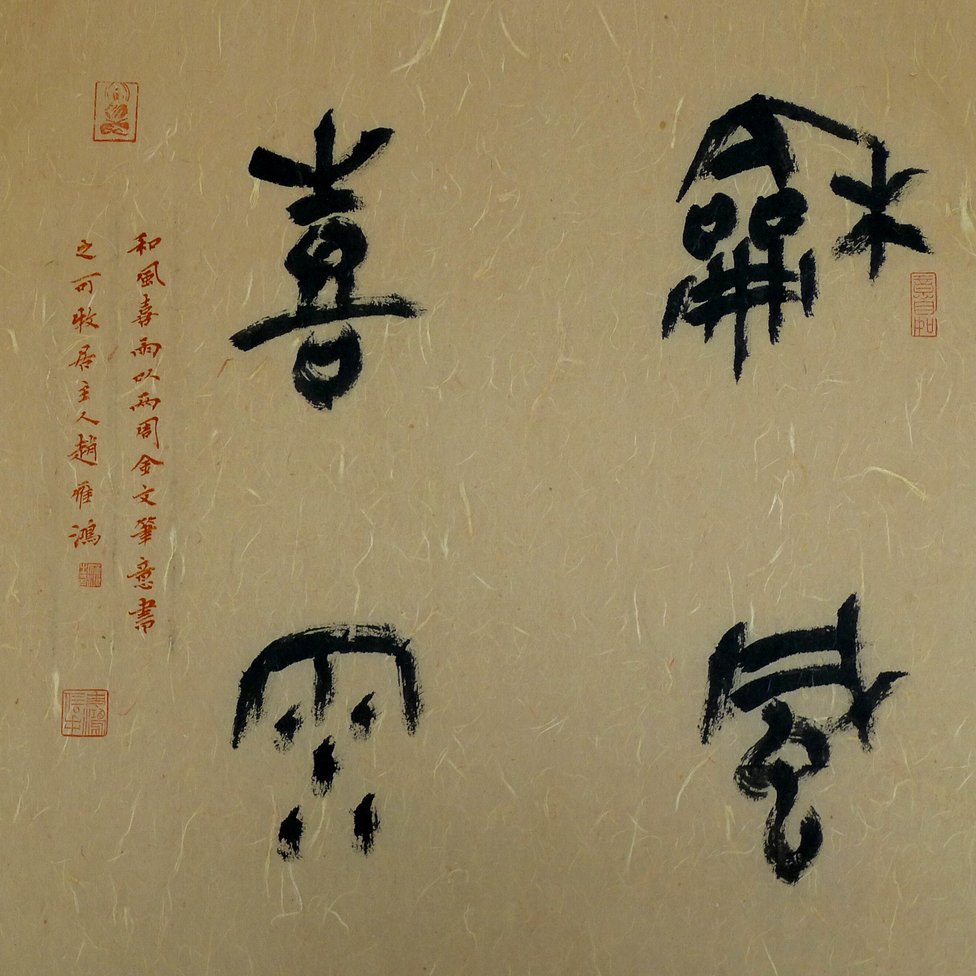 龢風
喜雨
和風喜雨以兩周金文筆意書
之可牧居主人趙雁鴻